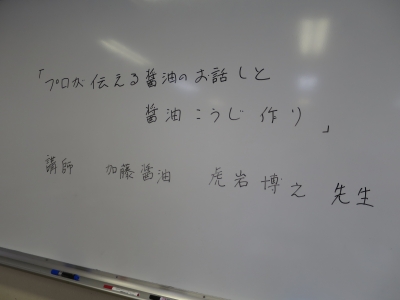 「プロが伝える醤油のお話しと
醤油こうじ作り」
講師 加藤醤油 虎岩博之先生